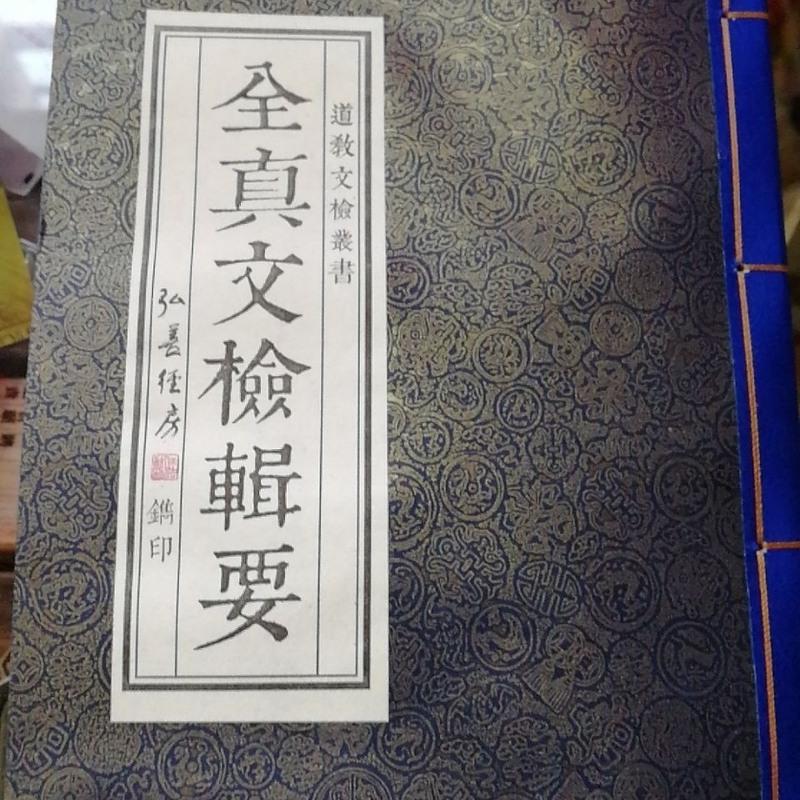 道教文檢叢書
全真文檢輯要
弘善經房
鐫印